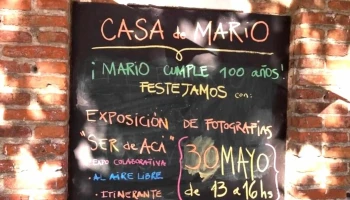 CASA de MARIO
¡MARIO CUMPLE 100 AÑOS!
FESTEJAMOS con:
EXPOSICIÓN DE FOTOGRAFIAS
"SER de ACÁ"
COLABORATIVA
• AL AIRE LIBRE
• ITINERANTE
30 MAYO
de 13 a 16 hs